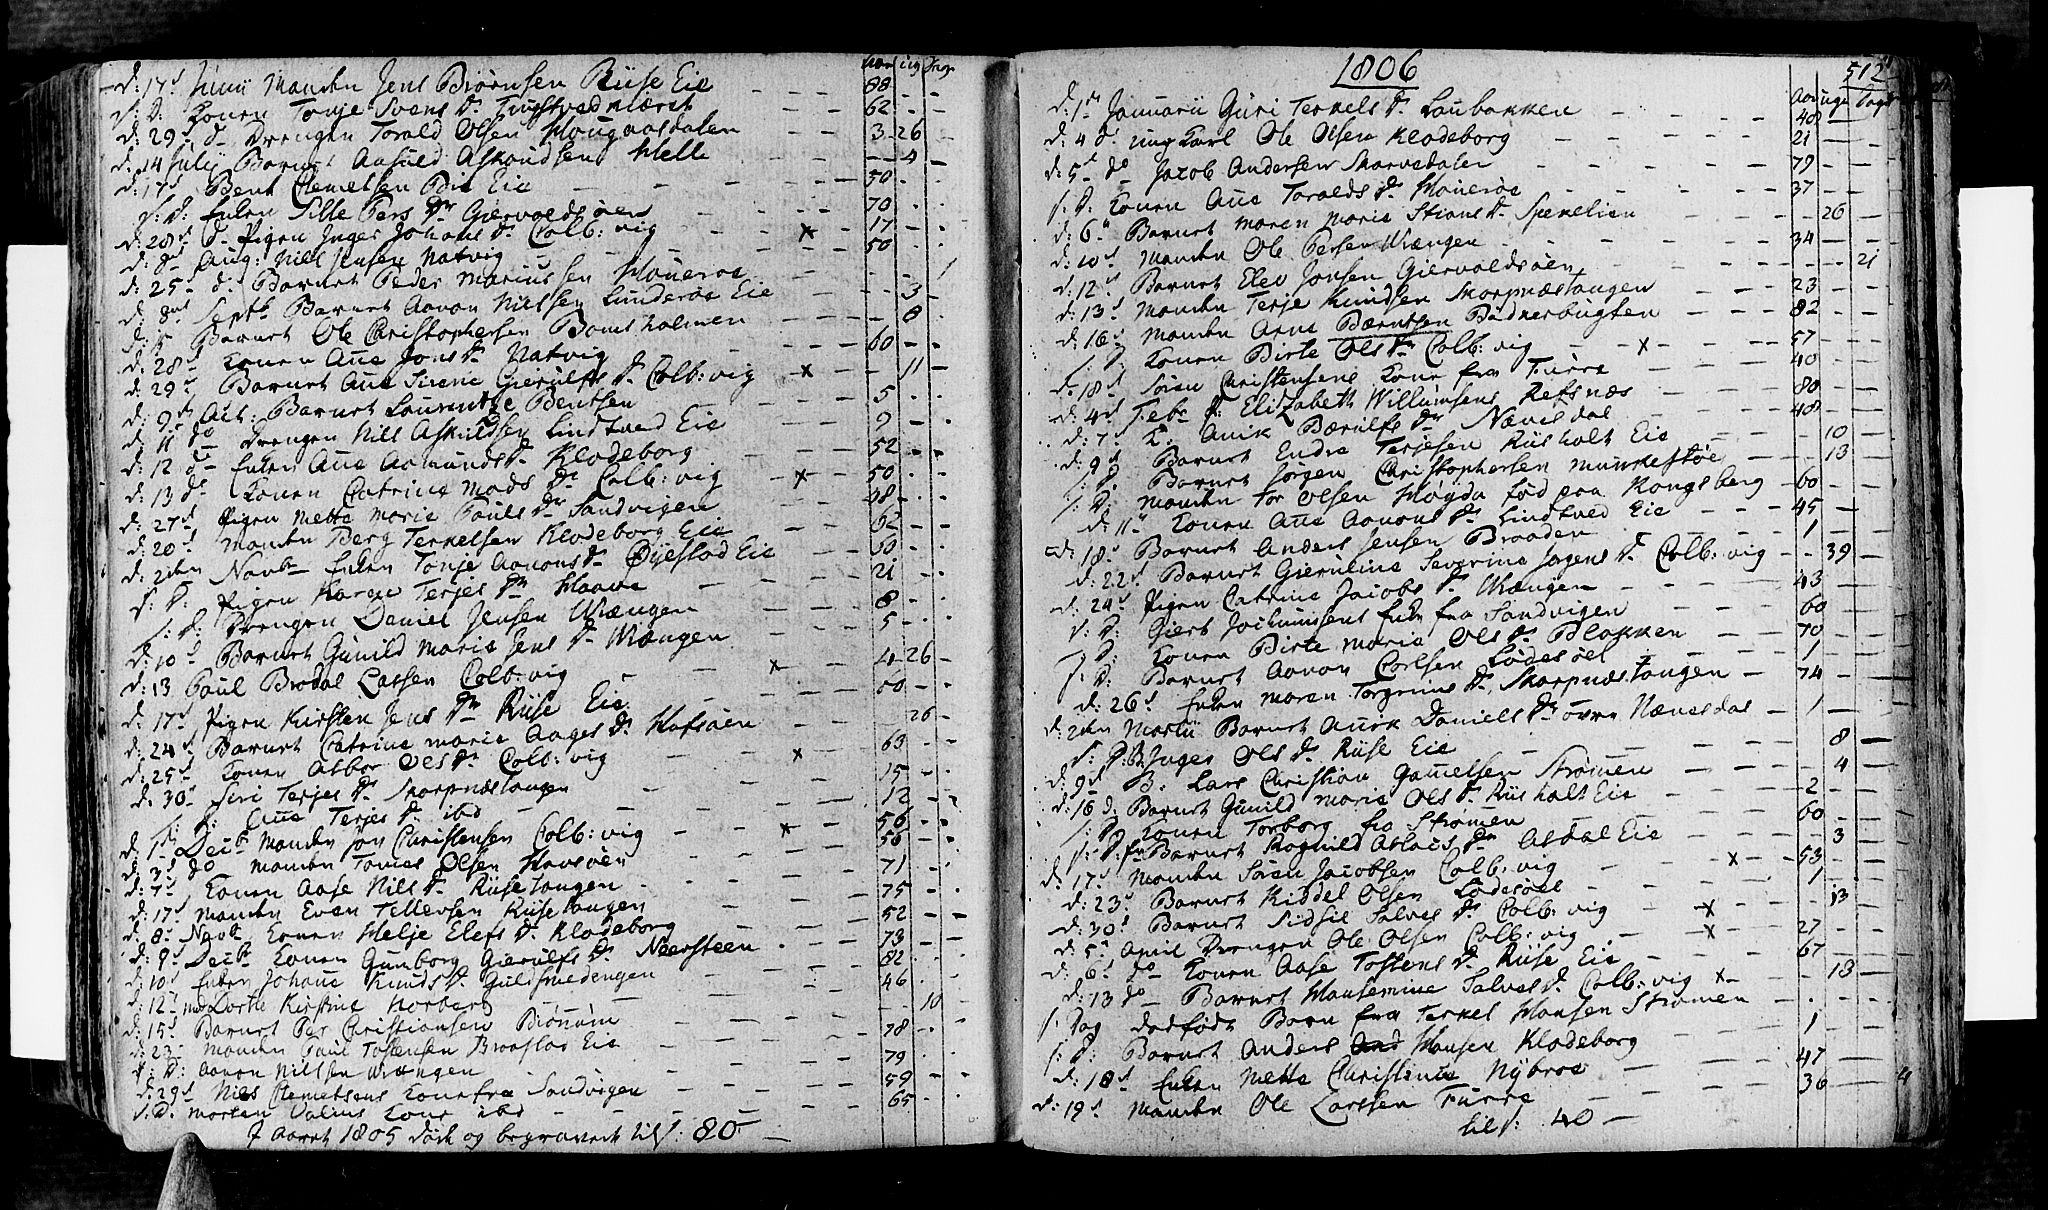 Aar ug Dage
d: 17d Junii Manden Jens Biörnsen Riise Eie - - - 88 - -
s: D: Konen Tonje Svens Dr Tingstvedkiæret - - 62 - -
d: 29d do Drengen Torald Olsen Hougaasdalen - - 3 - 26 -
d: 14 Julj Barnet Aasuld Askoudsen Helle - - 4 -
d: 17d Bent Clemetsen Bie Eie - - - 50 - -
s: D: Enken Sille Pers Dr Giervoldsöen - - - 70 - -
d: 28d do Pigen Inger Johans Dr Colb: vig - - x - 17 - -
d: 8de Aug: Niels Jensen Natvig - - - 50 - -
d: 25 - d: Barnet Peder Mariussen Houeröe
d: 8de Septb Barnet Aavon Nielsen Lunderöe Eie - - 3 -
d: 5 Barnet Ole Christophersen Bomsholmen - - - 8 -
d: 28d Konen Ane Jons Dr Natvig - - - 60 - -
d: 29d Barnet Ane Sirene Gierulfs Dr Colb: vig - x - - 11 -
d: 9de Oct: Barnet Laurentze Bentsen - - - 5 - -
d: 11 do Drengen Nils Askildsen Lindtved Eie - - 9 - -
d: 12 do Enken Ane Aamunds Dr Klodeborg - - 52 - -
d: 13 do Konen Catrine Mads Dr Colb: vig - x - 50 - -
d: 27d Pigen Mette Marie Pouls Dr Sandvigen - - 48 - -
d: 20d Manden Berg Terkelsen Klodeborg Eie - - 62 - -
d: 2den Novbr Enken Tonje Aavons Dr Öyestad Eie - - 50 - -
s: D: Pigen Karen Terjes Dr Haave - - 21 - -
s: D: Drengen Daniel Jensen Vrængen - - 8 - -
d: 10d Barnet Gunild Marie Jens Dr Vrængen - - 5 - -
d: 13 Paul Brodal Larsen Colb: vig - x - 4 - 26 -
d: 17d Pigen Kirsten Jens Dr Riise Eie - - 50 - -
d: 24d Barnet Catrine Marie Aages Dr Hafsöen - - 26 -
d: 25d Konen Asbor Ols Dr Colb: vig - x - 63 - -
d: 30d Siri Terjes Dr Skarpnæstangen - - 15 - -
s: D: Ane Terjes Dr ibd - - 12 - -
d: 1te Decbr Manden Jon Christensen Colb: vig - x - 56 - -
d: 3d do Manden Tomes Olsen Havsöen - - 50 - -
d: 7d Konen Aase Nils Dr Riisetangen - - 71 - -
d: 17d Manden Even Tellevsen Riisetangen - - 75 - -
d: 8d Novbr Konen Helje Elefs Dr Klodeborg - - 52 - -
d: 9d Decbr Konen Gunborg Gierulfs Dr Neersteen - - 73 - -
d: 10d Enken Johane Knuds Dr Guldsmedengen - - 82 - -
d: 12 - Dorthe Kirstine Norberg - - 46 - -
d: 15d Barnet Per Christiansen Biönnöm - - 10 -
d: 23 Manden Paul Tostensen Braastad Eie - - 78 - -
s: D: Aavon Nielsen Vrængen - - 79 - -
d: 29d Niels Clemetsens Kone fra Sandvigen - - 59 - -
s: D: Morten Valius Kone ibd - - 65 - -
I Aaret 1805 döde og begravede til s: 80
1806
512
Aar uge Dage
d: 1te Januarii Guri Terkels Dr Laubakken - - 40 - -
d: 4 d: ung Karl Ole Olsen Klodeborg - - 21 - -
d: 5d do Jacob Andersen Skarvedalen - - 79 - -
s: D: Konen Ane Toralds Dr Houeröe - - 37 - -
d: 6" Barnet Maren Marie Stians Dr Spekelien - - 26 -
d: 10d Manden Ole Persen Vrængen - - 34 - -
d: 12d Barnet Elev Jonsen Giervoldsöen - - 21
d: 13d Manden Terje Knudsen Skarpnæstangen - - 23 - -
d: 16d Manden Arne Bærntsen Bödkerbugten - - 82 - -
s: D: Konen Birte Ols Dr Colb: vig - x - 57 - -
d: 18d Sören Christensens Kone fra Furre - - 40 - -
d: 4d Febr D: Elizabeth Willumsens Refsnæs - - 80 - -
d: 7d K: Anik Bærulfs Dr Nævisdal - - 48 - -
d: 9d Barnet Endre Terjesen Riisholt Eie - - 10 -
s: D: Barnet Jörgen Christophersen Munkestöe - - 13 -
s: D: Manden Tor Olsen Högda föd paa Kongsberg - 60 - -
d: 11" Konen Ane Aavons Dr Lindtved Eie - - 45 - -
d: 18d Barnet Anders Jensen Braaden - - 1 - -
d: 22d Barnet Gieruline Severine Jörgens Dr Colb: vig - - 39 -
d: 24d Pigen Catrine Jacobs Dr Vrængen - - 43 - -
s: D: Giert Jochumsens Enke fra Sandvigen - - 60 - -
s: D: Konen Birte Marie Ols Dr Blakken - - 70 - -
s: D: Barnet Aavon Carlsen Lödesöel - - 1 - -
d: 26d Enken Maren Torgrims Dr Skarpnæstangen - 74 - -
d: 2den Martii Barnet Anne Daniels Dr övre Nævesdal - 1 - -
s: D: B: Inger Ols Dr Riise Eie - - 8 -
d: 9d B: Lars Christian Gamelsen Strömen - - 4 -
d: 16 d Barnet Gunild Marie Ols Dr Riisholt Eie - - 2 - -
s: D: Konen Torborg fra Strömen - - 60 - -
s: D: Barnet Rognild Aslaus Dr Asdal Eie - - 3 -
d: 17d Manden Sören Jacobsen Colb: vig - x - 53 - -
d: 23d Barnet Kiddel Olsen Lödesöel - - 1 - -
d: 30d Barnet Sidsel Salves Dr Colb: vig - x - 13 -
d: 5d April Drengen Ole Olsen Colb: vig - x - 27 - -
d: 6d do Konen Aase Tostens Dr Riise Eie - - 67 - -
d: 13 do Barnet Hansemine Salves Dr Colb: vig x - 18 -
s: Dag dödfödt Barn fra Terkel Hansen Strömen - - -
s: D: Barnet Anders Hansen Klodeborg - - 1 - -
d: 18d Enken Mette Christine Nybroe - - 47 - -
d: 19d Manden Ole Larsen Furre - - 36 - -
til s: 40 -